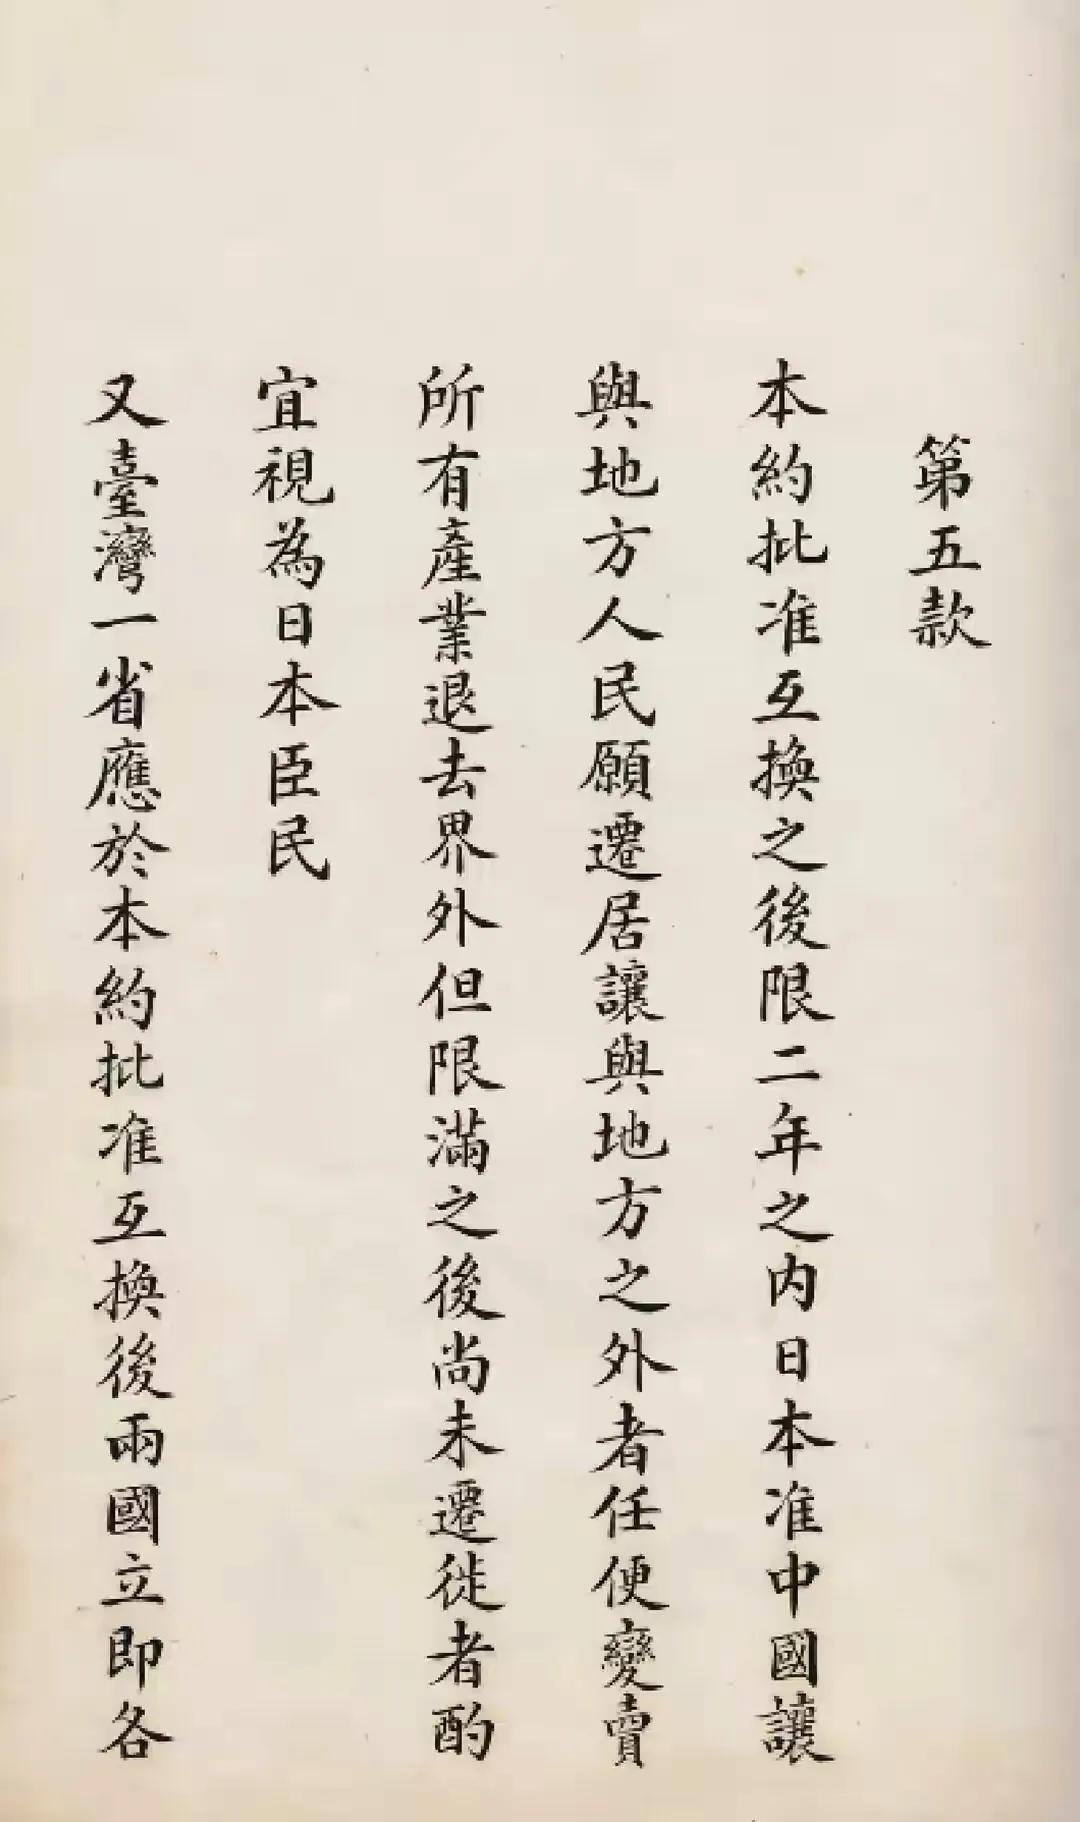 第五款
本約批准互換之後限二年之内日本准中國讓
與地方人民願遷居讓與地方之外者任便變賣
所有產業退去界外但限滿之後尚未遷徙者酌
宜視為日本臣民
又臺灣一省應於本約批准互換後兩國立即各